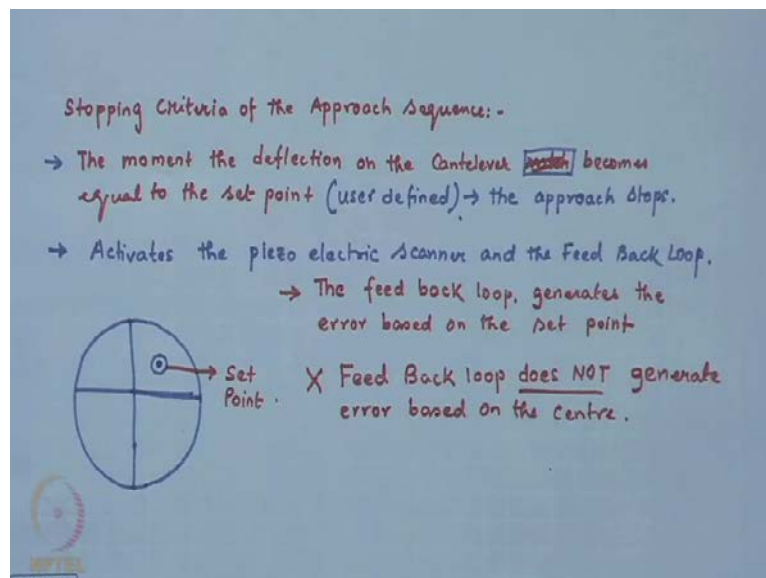 Stopping Criteria of the Approach Sequence:-
→ The moment the deflection on the Cantelever becomes
equal to the set point (user defined) → the approach stops.
→ Activates the piezo electric scanner and the Feed Back Loop.
→ The feed back loop, generates the
error based on the set point
→ Set
Point.
X Feed Back loop does NOT generate
error based on the centre.
NPTEL